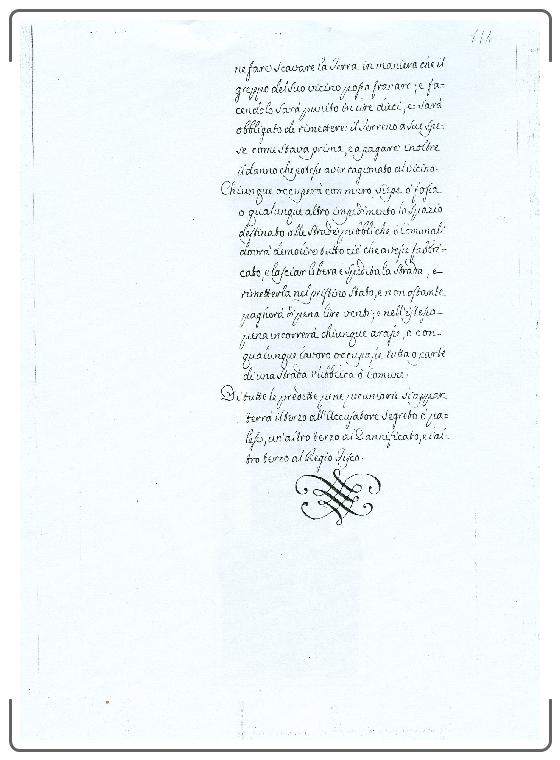 114
ne fare scavare la Terra in maniera che il
greppo del suo vicino possa franare; e fa-
cendolo sarà punito in lire dieci, e sarà
obbligato di rimettere il Terreno a sue spe-
se come stava prima, e a pagare inoltre
il danno che potesse aver cagionato al vicino.
Chiunque occuperà con muro, siepe o fossa
o qualunque altro impedimento lo spazio
destinato alle Strade pubbliche o Comunali
dovrà demolire tutto ciò che avesse fabbri-
cato, e lasciar libera e spedita la strada, e
rimetterla nel pristino stato, e non ostante
pagherà di pena lire venti; e nell'istessa
pena incorrerà chiunque arasse, o con
qualunque lavoro occupasse tutta o parte
di una strada Pubblica o Comune.
Di tutte le predette pene pecuniarie s'appar-
terrà il terzo all'Accusatore segreto o pa-
lese, un'altro terzo al Dannificato, e l'al-
tro terzo al Regio Fisco.